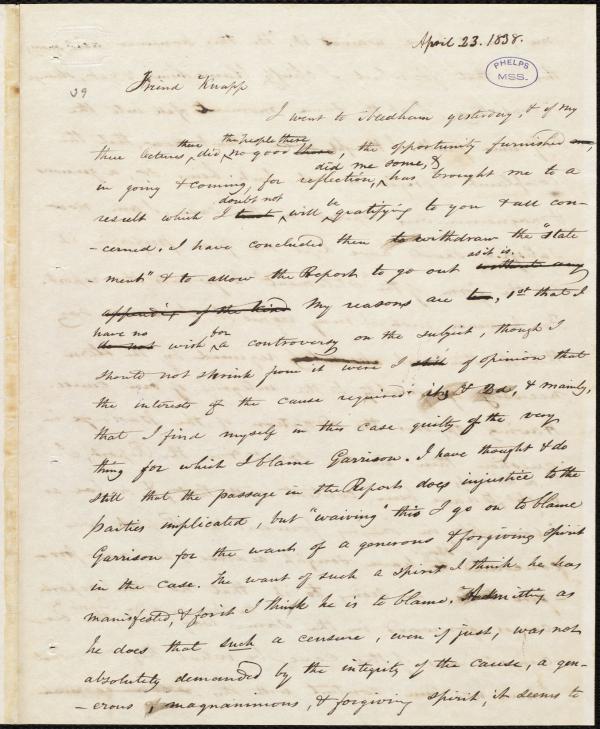 April 23. 1838.
PHELPS
MSS.
Friend Knapp
I went to Needham yesterday, & if my
three lectures there did the people there no good those, the opportunity furnished me,
in going & coming, for reflection, did me some, & has brought me to a
result which I trust doubt not will be gratifying to you & all con-
-cerned. I have concluded then to withdraw the "State
ment" & to allow the Report to go out as it is. without any
appendix of the kind My reasons are 1st that I
have no do not wish for a controversy on the subject, though I
should not shrink from it were I still of opinion that
the interests of the cause required it, & 2d, & mainly,
that I find myself in this case guilty of the very
thing for which I blame Garrison. I have thought & do
still that the passage in the Report does injustice to the
parties implicated, but "waiving" this I go on to blame
Garrison for the want of a generous & forgiving spirit
in the case. The want of such a spirit I think he has
manifested, & for it I think he is to blame. Admitting as
he does that such a censure, even if just, was not
absolutely demanded by the integrity of the cause, a gen-
-erous, magnanimous, & forgiving spirit, it seems to